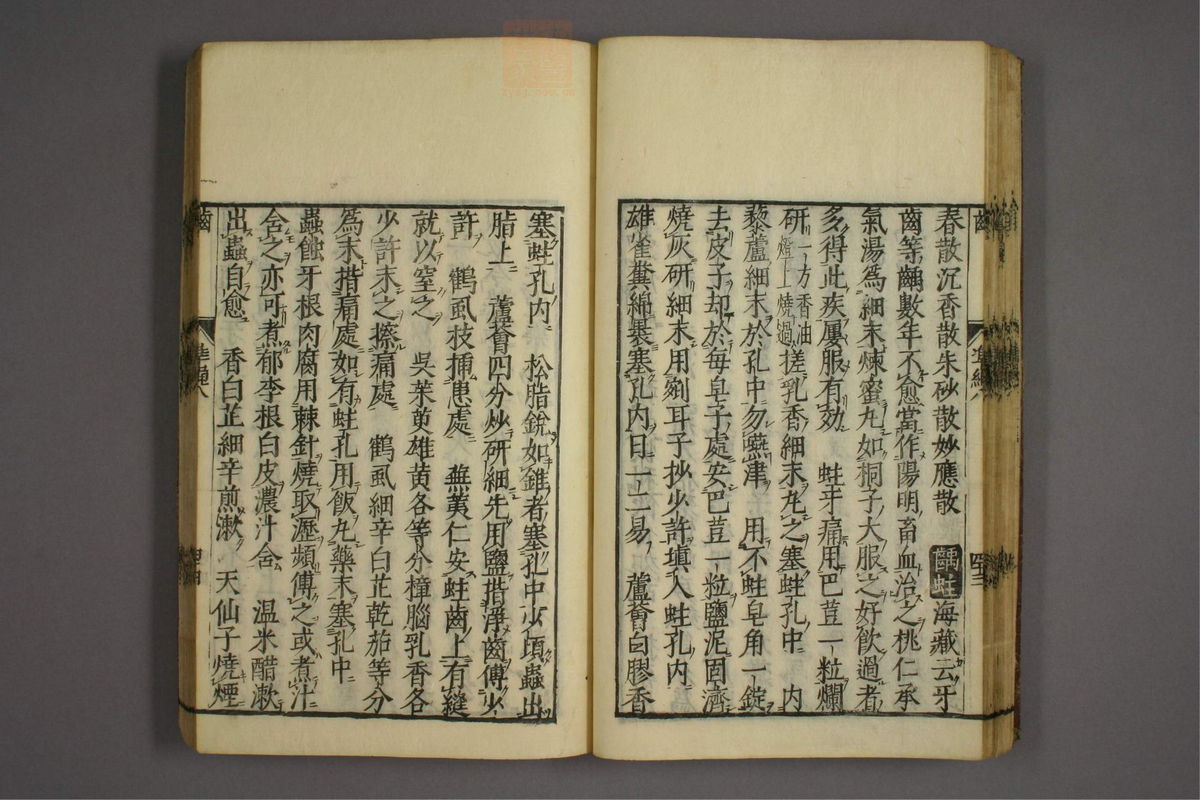 春散沉香散朱砂散妙應散 齲蛀海藏云牙
齒等齲數年不愈當作陽明畜血治之桃仁承
氣湯爲細末煉蜜丸如桐子大服之好飲過者
多得此疾屢服有効 蛀牙痛用巴荳一粒爛
研一一方香油燈上燒過搓乳香細末丸之塞蛀孔中 內
藜蘆細末於孔中勿嚥津 用不蛀皂角一錠
去皮子却於每皂子處安巴荳一粒鹽泥固濟
燒灰研細末用剜耳子抄少許塡入蛀孔內
雄雀糞綿裹塞孔內日一二易 蘆薈白膠香
塞蛀孔內 松脂銳如錐者塞孔中少頃蟲出
脂上 蘆薈四分炒研細先用鹽揩淨齒傅少
許 鶴虱枝揷患處 蕪荑仁安蛀齒上有縫
就以窒之 吳茱萸雄黃各等分樟腦乳香各
少許末之擦痛處 鶴虱細辛白芷乾茄等分
爲末揩痛處如有蛀孔用飯丸藥末塞孔中
蟲蝕牙根肉腐用棘針燒取瀝頻傅之或煮汁
含之亦可煮郁李根白皮濃汁含 温米醋漱
出蟲自愈 香白芷細辛煎漱 天仙子燒煙
齒
準繩八